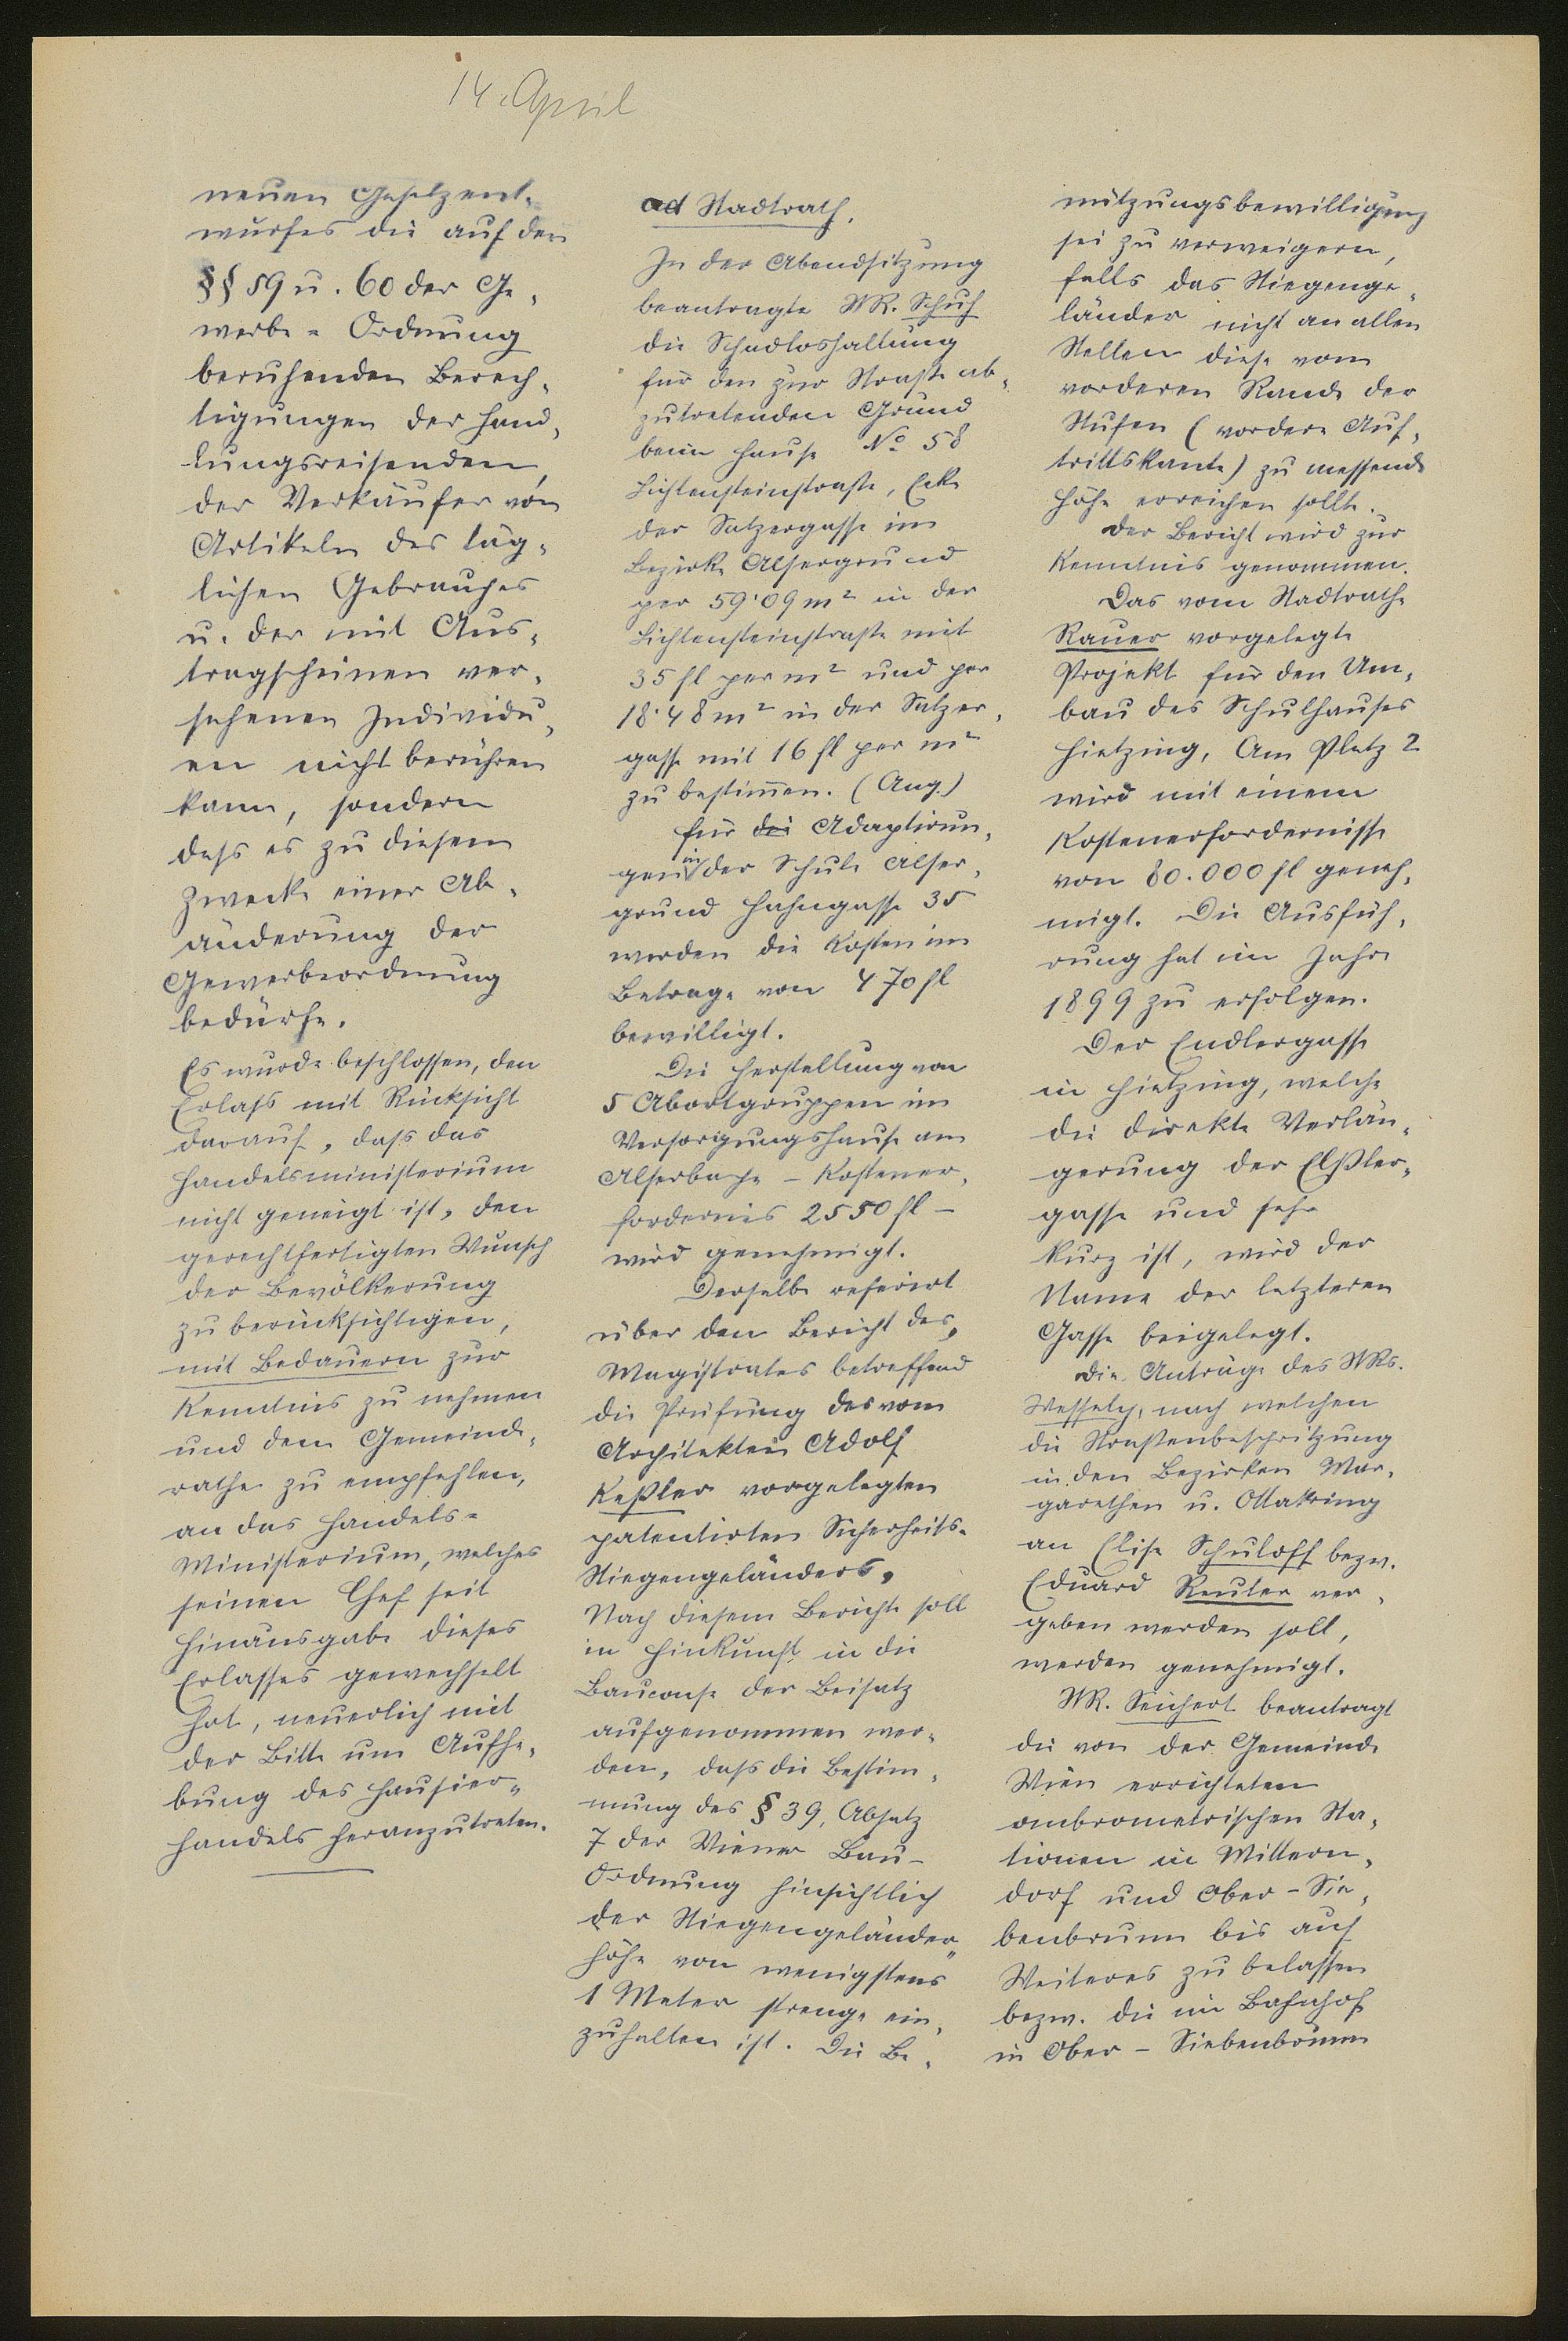 14. April
neuen Gesetzent-
wurfes die auf den
§§ 59 u. 60 der Ge-
werbe-Ordnung
beruhenden Berech-
tigungen der Hand-
lungsreisenden,
der Verkäufer von
Artikeln des täg-
lichen Gebrauches
u. der mit Aus-
tragscheinen ver-
sehenen Individu-
en nicht berühren
kann, sondern
dass es zu diesem
Zwecke einer Ab-
änderung der
Gewerbeordnung
bedürfe.
Es wurde beschlossen, den
Erlass mit Rücksicht
darauf, dass das
Handelsministerium
nicht geneigt ist, den
gerechtfertigten Wunsch
der Bevölkerung
zu berücksichtigen,
mit Bedauern zur
Kenntnis zu nehmen
und dem Gemeinde-
rathe zu empfehlen,
an das Handels-
Ministerium, welches
seinen Chef seit
Hinausgabe dieses
Erlasses gewechselt
hat, neuerlich mit
der Bitte um Aufhe-
bung des Hausier-
handels heranzutreten.
ad Stadtrath.
In der Abendsitzung
beantragte StR. Schuh
die Schadloshaltung
für den zur Straße ab-
zutretenden Grund
beim Hause No 58
Lichtensteinstraße, Ecke
der Salzergasse im
Bezirke Alsergrund
per 59·09 m² in der
Lichtensteinstraße mit
35 fl per m² und per
18·48 m² in der Salzer-
gasse mit 16 fl per m²
zu bestimmen. (Ang.)
Für die Adaptirun-
gen in der Schule Alser-
grund Hahngasse 35
werden die Kosten im
Betrage von 470 fl
bewilligt.
Die Herstellung von
5 Abortgruppen im
Versorgungshause am
Alserbache - Kostener-
fordernis 2550 fl -
wird genehmigt.
Derselbe referirt
über den Bericht des
Magistrates betreffend
die Prüfung des vom
Architekten Adolf
Keßler vorgelegten
patentirten Sicherheits-
Stiegengeländers,
Nach diesem Berichte soll
in Hinkunft in die
Bauconse der Beisatz
aufgenommen wer-
den, dass die Bestim-
mung des § 39, Absatz
7 der Wiener Bau-
Ordnung hinsichtlich
der Stiegengeländer-
höhe von wenigstens
1 Meter strenge ein-
zuhalten ist. Die Be-
nützungsbewilligung
sei zu verweigern,
falls das Stiegenge-
länder nicht an allen
Stellen diese vom
vorderen Rande der
Stufen (vordere Auf-
trittskante) zu messende
Höhe erreichen sollte.
Der Bericht wird zur
Kenntnis genommen.
Das vom Stadtrathe
Rauer vorgelegte
Projekt für den Um-
bau des Schulhauses
Hietzing, Am Platz 2
wird mit einem
Kostenerfordernisse
von 80.000 fl geneh-
migt. Die Ausfüh-
rung hat im Jahre
1899 zu erfolgen.
Der Endlergasse
in Hietzing, welche
die direkte Verlän-
gerung der Elßler-
gasse und sehr
kurz ist, wird der
Name der letzteren
Gasse beigelegt.
Die Anträge des StRs.
Wessely, nach welchen
die Straßenbespritzung
in den Bezirken Mar-
garethen u. Ottakring
an Elise Schuloff bezw.
Eduard Reuter ver-
geben werden soll,
werden genehmigt.
StR. Seichert beantragt
die von der Gemeinde
Wien errichteten
ombrometrischen Sta-
tionen in Mittern-
dorf und Ober-Sie-
benbrunn bis auf
Weiteres zu belassen
bezw. die im Bahnhof
in Ober-Siebenbrunn